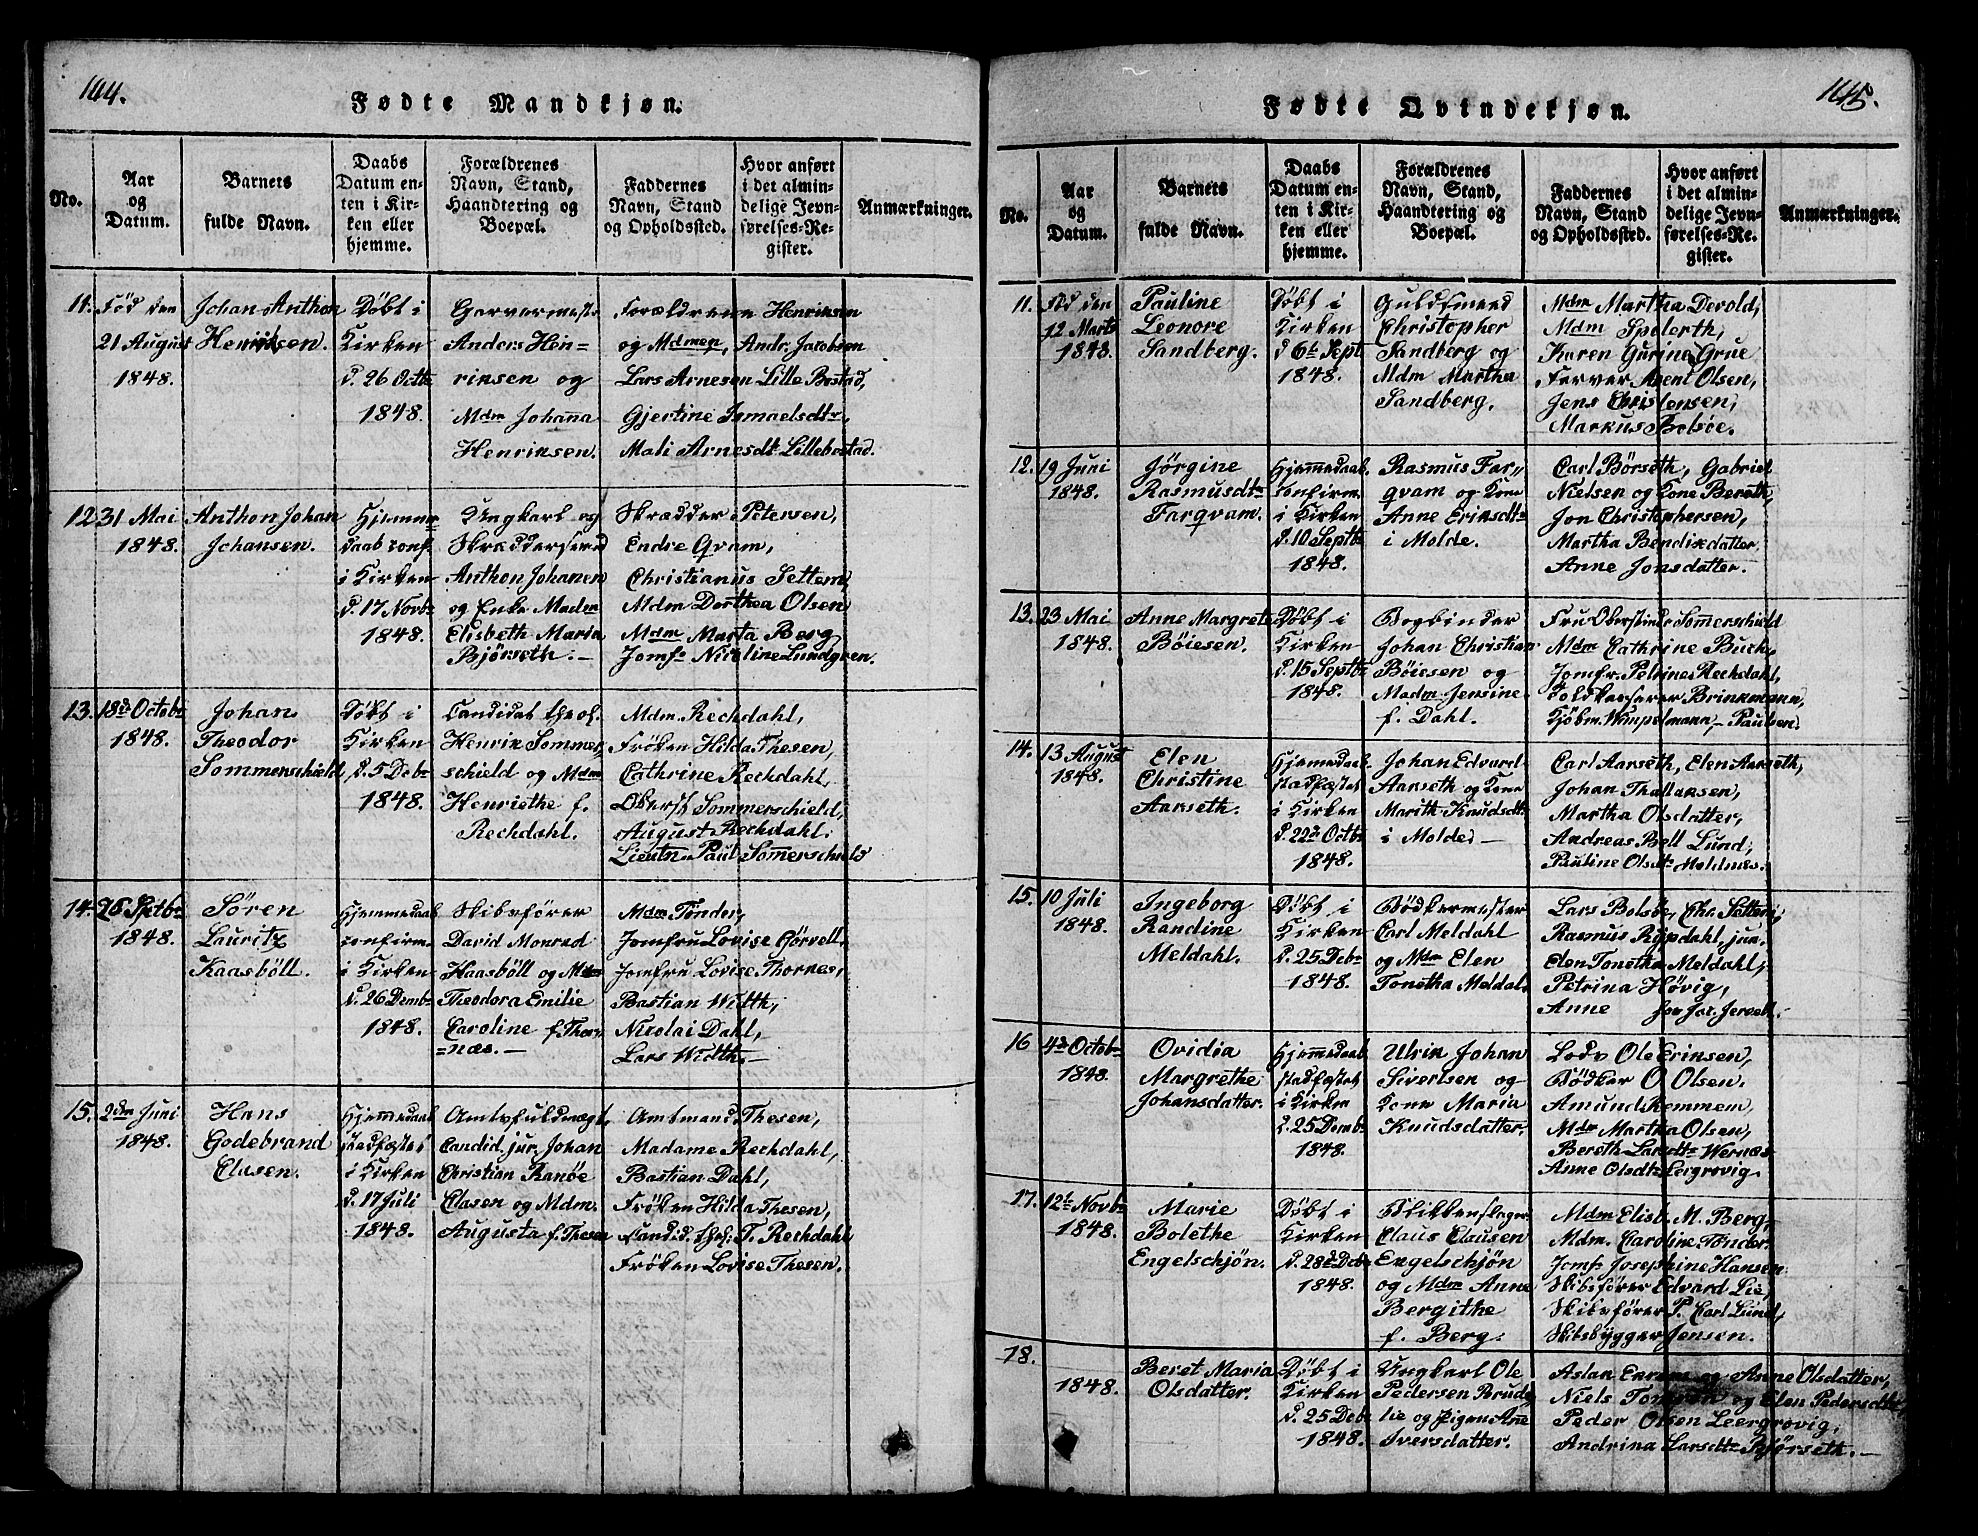 144.
Fødte Mandkjøn.
No.
Aar
og
Datum.
Barnets
fulde Navn.
Daabs
Datum en-
ten i Kir-
ken eller
hjemme.
Forældrenes
Navn, Stand,
Haandtering og
Boepæl.
Faddernes
Navn, Stand
og Opholdssted.
Hvor anført
i det almin-
delige Jevn-
førelses-Re-
gister.
Anmærkninger.
11.
Fød den
21 August
1848.
Johan Anthon
Henriksen.
Døbt i
Kirken
d. 26 Octbr
1848.
Garvermestr
Anders Hen=
riksen og
Mdm Johanna
Henriksen.
Forældrene Henriksen
og Mdmen, Andr. Jacobsen
Lars Arnesen Lille Bostad,
Gjertine Ismaelsdtr,
Mali Arnesdt Lillebostad.
12.
31 Mai
1848.
Anthon Johan
Johansen.
Hjemme
daab conf.
i Kirken
d. 17 Novbr
1848.
Ungkarl og
Skræddersvend
Anthon Johanen
og Enke Madm
Elisbeth Maria
Bjørseth. –
Skrædder Petersen,
Endre Qvam,
Christianus Settem,
Mdm Dorthea Olsen
Mdm Marta Berg
Jomfr Nicoline Lundgren.
13.
18de Octobr
1848.
Johan
Theodor
Sommerschield
Døbt i
Kirken
d. 5 Debr
1848.
Candidat theol.
Henrik Sommer
schield og Mdm
Henriethe f.
Rechdahl.
Mdm. Rechdahl,
Frøken Hilda Thesen,
Cathrine Rechdahl,
Oberst Sommerschield,
August Rechdahl.
Lieutn Paul Somerschield
14.
26 Sptbr
1848.
Søren
Lauritz
Kaasbøll.
Hjemmedaab
confirm.
i Kirken
d. 26 Dembr
1848.
Skibsfører
David Monrad
Kaasbøll og Mdm
Theodora Emilie
Caroline f. Thor
=næs. –
Mdm Tønder,
Jomfru Lovise Gørvell,
Jomfru Lovise Thornes,
Bastian Width,
Nicolai Dahl,
Lars Width. –
15.
2den Juni
1848.
Hans
Godebrand
Clasen.
Hjemmedaab
stadfæstet
i Kirken
d. 17 Juli
1848.
Amtsfuldmægt.
Candid. jur. Johan
Christian Ranøe
Clasen og Mdm.
Augusta f. Thesen
Amtmand Thesen,
Madame Rechdahl,
Bastian Dahl,
Frøken Hilda Thesen,
Candid. thel: T. Rechdahl
Frøken Lovise Thesen.
145.
Fødte Qvindekjøn.
No.
Aar
og
Datum.
Barnets
fulde Navn.
Daabs
Datum en-
ten i Kir-
ken eller
hjemme.
Forældrenes
Navn, Stand,
Haandtering og
Boepæl.
Faddernes
Navn, Stand
og Opholdssted.
Hvor anført
i det almin-
delige Jevn-
førelses-Re-
gister.
Anmærkninger.
11.
Fød den
12 Marts
1848.
Pauline
Leonore
Sandberg.
Døbt i
Kirken
d 6te Sept
1848.
Guldsmed
Christopher
Sandberg og
Mdm Martha
Sandberg.
Mdm Martha Devold,
Mdm Spilerth,
Karen Gurine Grue
Farver Arent Olsen,
Jens Christensen,
Markus Bolsøe.
12.
19 Juni
1848.
Jørgine
Rasmusdtr
Farqvam.
Hjemmedaab
confirm.
i Kirken
d. 10 Septbr
1848.
Rasmus Far
qvam og Kone
Anne Eriksdtr
i Molde.
Carl Børseth, Gabriel
Nielsen og Kone Bereth,
Jon Christophersen,
Martha Bendixdatter,
Anne Jonsdatter.
13.
23 Mai
1848.
Anne Margrete
Bøiesen.
Døbt i
Kirken
d. 15 Septbr
1848.
Bogbinder
Johan Christian
Bøiesen og
Madm Jensine
f. Dahl.
Fru Oberstinde Somerschield
Mdm Cathrine Buch,
Jomfr. Petrine Rechdahl,
Toldkasserer Brinkmann,
Kjøbm. Wimpelmann, – Paulsen.
14.
13 August
1848.
Elen
Christine
Aarseth.
Hjemmedaab
stadfæstet
i Kirken
d. 22de Octbr
1848.
Johan Edvard
Aarseth og Kone
Marith Knudsdtr
i Molde –
Carl Aarseth, Elen Aarseth,
Johan Thallaksen,
Martha Olsdatter,
Andreas Bell Lund,
Pauline Olsdtr Moldnes.
15.
10 Juli
1848.
Ingeborg
Randine
Meldahl.
Døbt i
Kirken
d. 25 Debr
1848.
Bødkermester
Carl Meldahl
og Mdm Elen
Tonetha Meldal.
Lars Bolsøe, Chr. Settem,
Rasmus Rypdahl, jun.
Elen Tonetha Meldahl,
Petrina Høvig,
Anne
16
4de Octobr
1848.
Ovidia
Margrethe
Johansdatter.
Hjemmedaab
stadfæstet
i Kirken
d. 25 Dembr
1848.
Ulrik Johan
Sivertsen og
Kone Maria
Knudsdatter.
Lods Ole Eriksen,
Bødker O Olsen.
Amund Remmem,
Mdm Martha Olsen,
Bereth Larsdtr Wernes
Anne Olsdtr Leirgrovig.
17.
12te Novbr
1848.
Marie
Bolethe
Engelschjøn.
Døbt i
Kirken
d. 28de Debr
1848.
Blikkenslager
Claus Clausen
Engelschjøn
og Mdm Anne
Bergithe
f. Berg.
Mdm Elisb. M. Berg,
Mdm. Caroline Tønder.
Jomfr Josephine Hansen
Skibsfører Edvard Lie,
Skibsfører P. Carl Lund,
Skibsbygger Jensen.
18.
1848.
Beret Maria
Olsdatter.
Døbt i
Kirken
d. 25 Debr
1848.
Ungkarl Ole
Pedersen Brude
lie og pigen Ane
Iversdatter.
Aslan og Anne Olsdatter,
Niels og Elen Pedersdtr
Peder Olsen Leergrovig,
Andrina Larsdtr Bjørseth. –